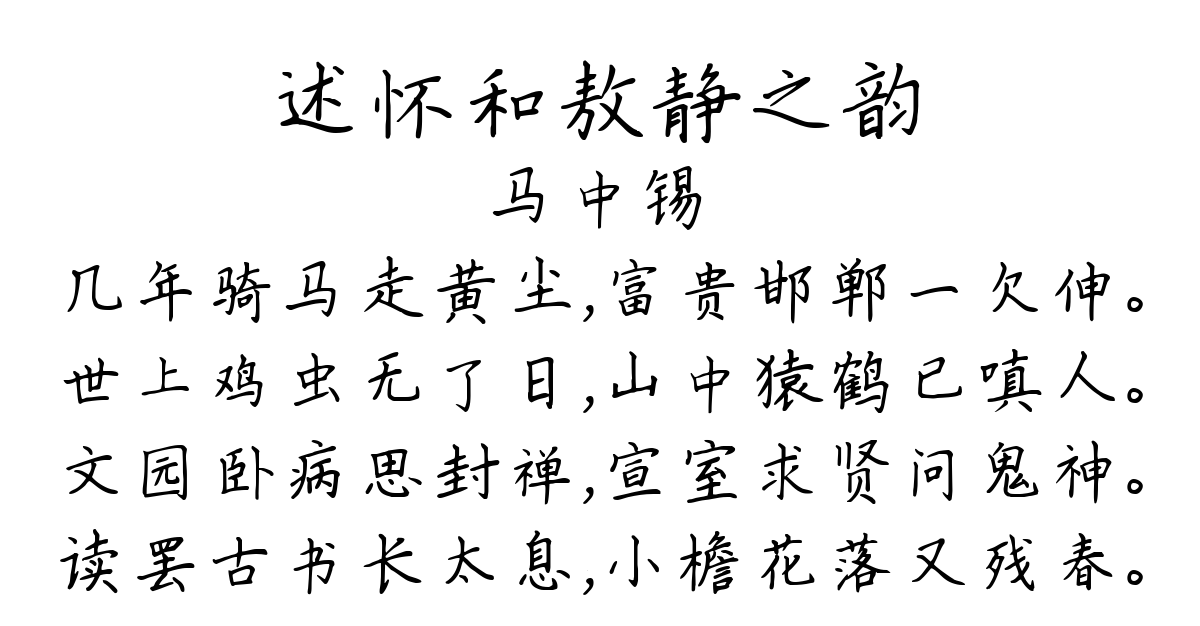 述怀和敖静之韵
马中锡
几年骑马走黄尘,富贵邯郸一欠伸。
世上鸡虫无了日,山中猿鹤已嗔人。
文园卧病思封禅,宣室求贤问鬼神。
读罢古书长太息,小檐花落又残春。